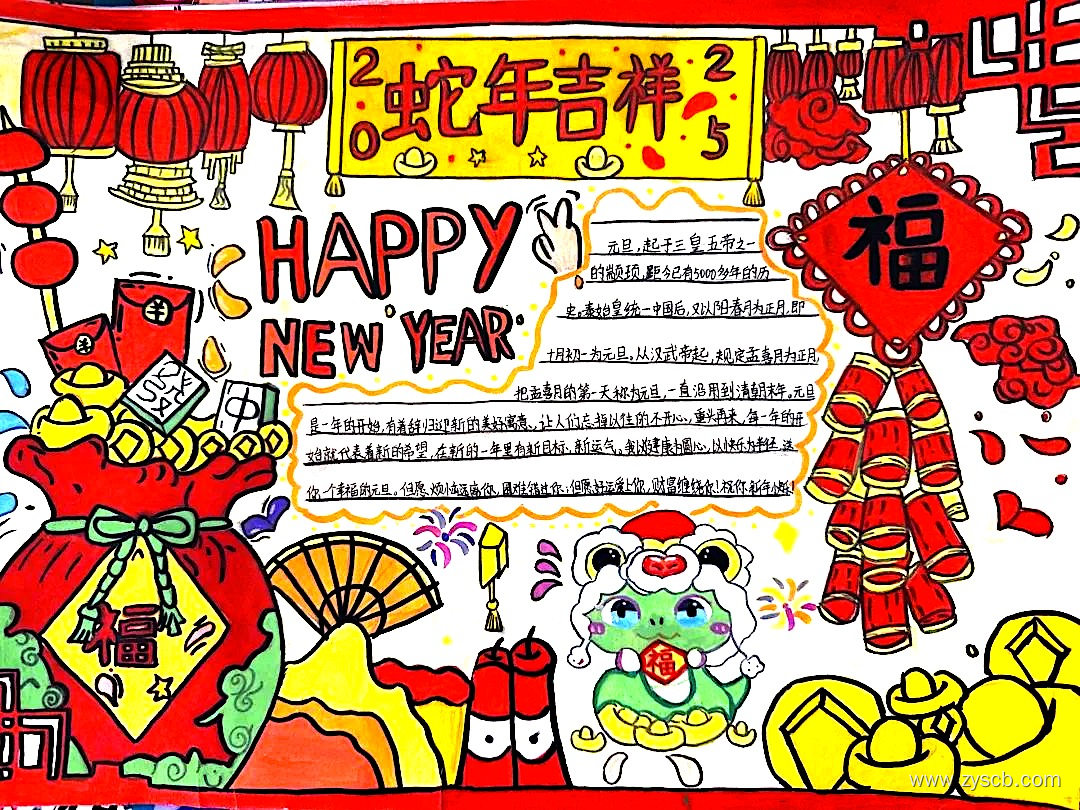 2025
蛇年吉祥
HAPPY
NEW YEAR
福
元旦，起于三皇五帝之一
的颛顼，距今已有5000多年的历
史。秦始皇统一中国后，又以阳春月为正月，即
十月初一为元旦，从汉武帝起，规定孟喜月为正月，
把孟喜月的第一天称为元旦，一直沿用到清朝末年，元旦
是一年的开始，有着辞旧迎新的美好寓意，让人们忘掉以往的不开心，重头再来，每一年的开
始就代表着新的希望，在新的一年里有新目标，新运气，我以健康为圆心，以快乐为半径，送
你一个幸福的元旦，但愿烦恼远离你，困难错过你；但愿好运爱上你，财富缠绕你！祝你新年快乐！
中
福
福
www.zyscb.com